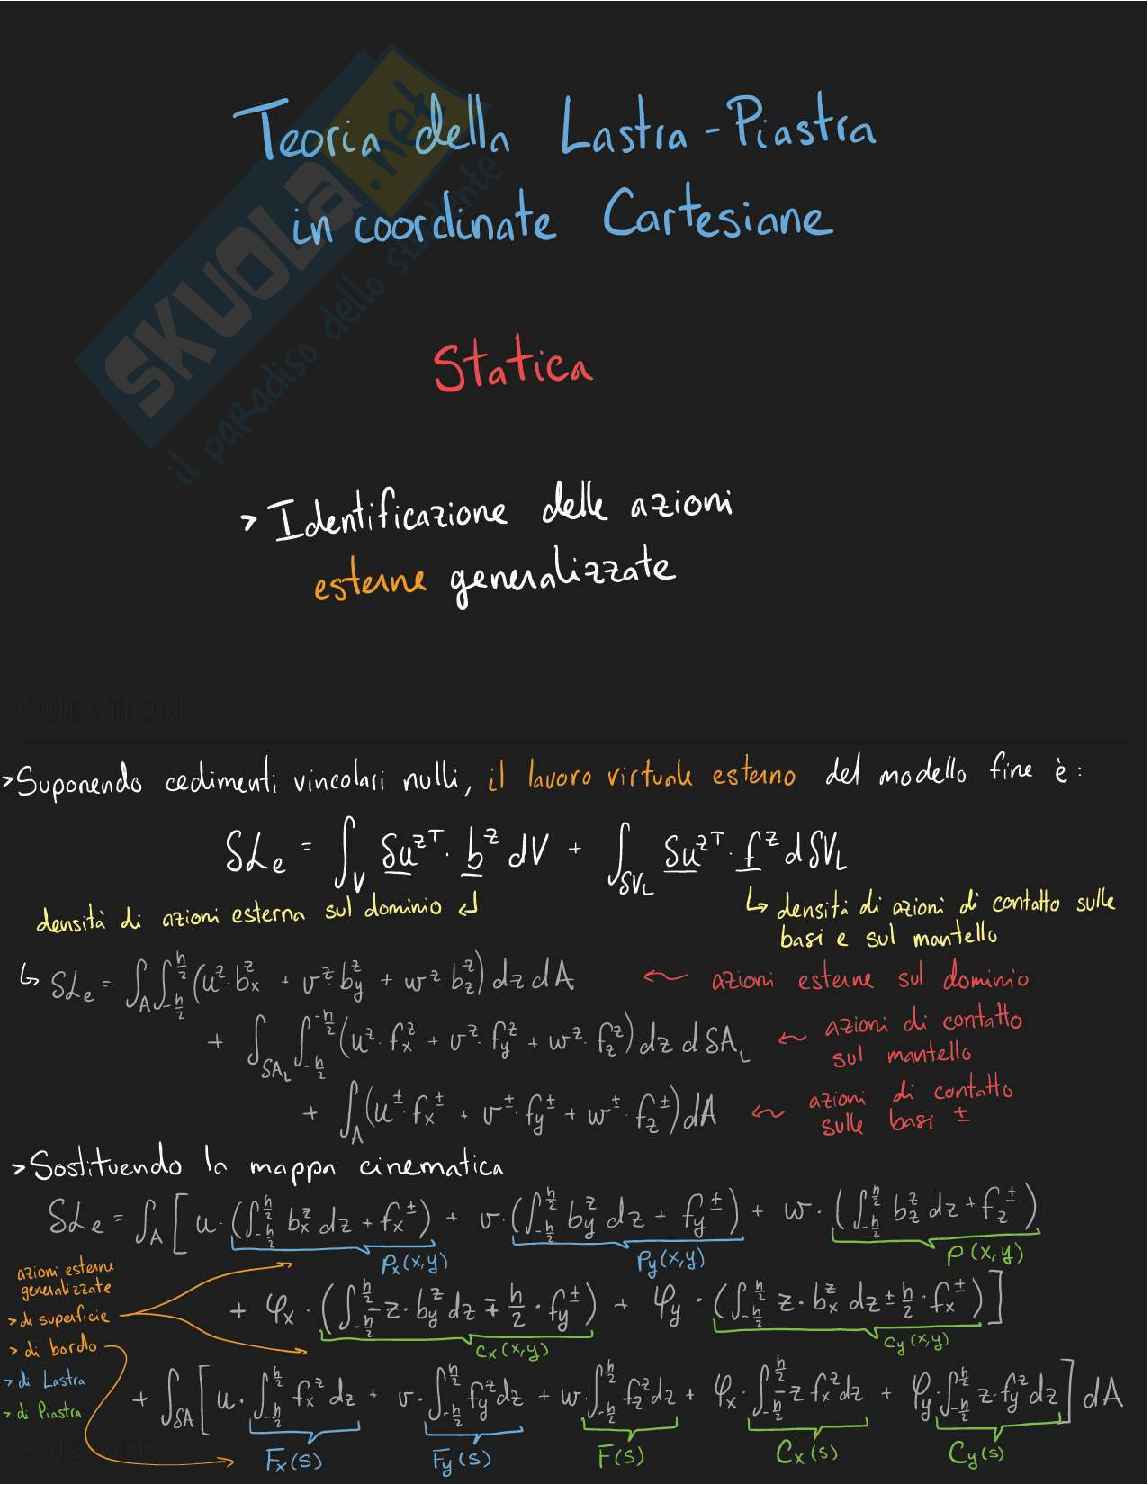 Teoria della Lastra-Piastra
in coordinate Cartesiane
SKUOLA.net
il paradiso dello studente
Statica
> Identificazione delle azioni
esterne generalizzate
> Suponendo cedimenti vincolari nulli, il lavoro virtuale esterno del modello fine è:
δLe = ∫_V δu^zT · b^z dV + ∫_δV_L δu^zT · f^z dδV_L
densità di azioni esterna sul dominio ↲
↳ densità di azioni di contatto sulle
basi e sul mantello
↳ δLe = ∫_A ∫_{-h/2}^{h/2} (u^z · b_x^z + v^z b_y^z + w^z b_z^z) dz dA ← azioni esterne sul dominio
+ ∫_δA_L ∫_{-h/2}^{-h/2} (u^z · f_x^z + v^z · f_y^z + w^z · f_z^z) dz dδA_L ← azioni di contatto
sul mantello
+ ∫_A (u^± · f_x^± + v^± · f_y^± + w^± · f_z^±) dA ← azioni di contatto
sulle basi ±
> Sostituendo la mappa cinematica
δLe = ∫_A [ u · (∫_{-h/2}^{h/2} b_x^z dz + f_x^±) + v · (∫_{-h/2}^{h/2} b_y^z dz + f_y^±) + w · (∫_{-h/2}^{h/2} b_z^z dz + f_z^±)
Px(x,y) Py(x,y) P(x,y)
azioni esterne
generalizzate
> di superficie
> di bordo
> di Lastra
> di Piastra
+ φx · (∫_{-h/2}^{h/2} -z · b_y^z dz ∓ h/2 · f_y^±) + φy · (∫_{-h/2}^{h/2} z · b_x^z dz ± h/2 · f_x^±) ]
cx(x,y) cy(x,y)
+ ∫_δA [ u · ∫_{-h/2}^{h/2} f_x^z dz + v · ∫_{-h/2}^{h/2} f_y^z dz + w · ∫_{-h/2}^{h/2} f_z^z dz + φx · ∫_{-h/2}^{h/2} -z f_x^z dz + φy · ∫_{-h/2}^{h/2} z · f_y^z dz ] dA
Fx(s) Fy(s) F(s) Cx(s) Cy(s)